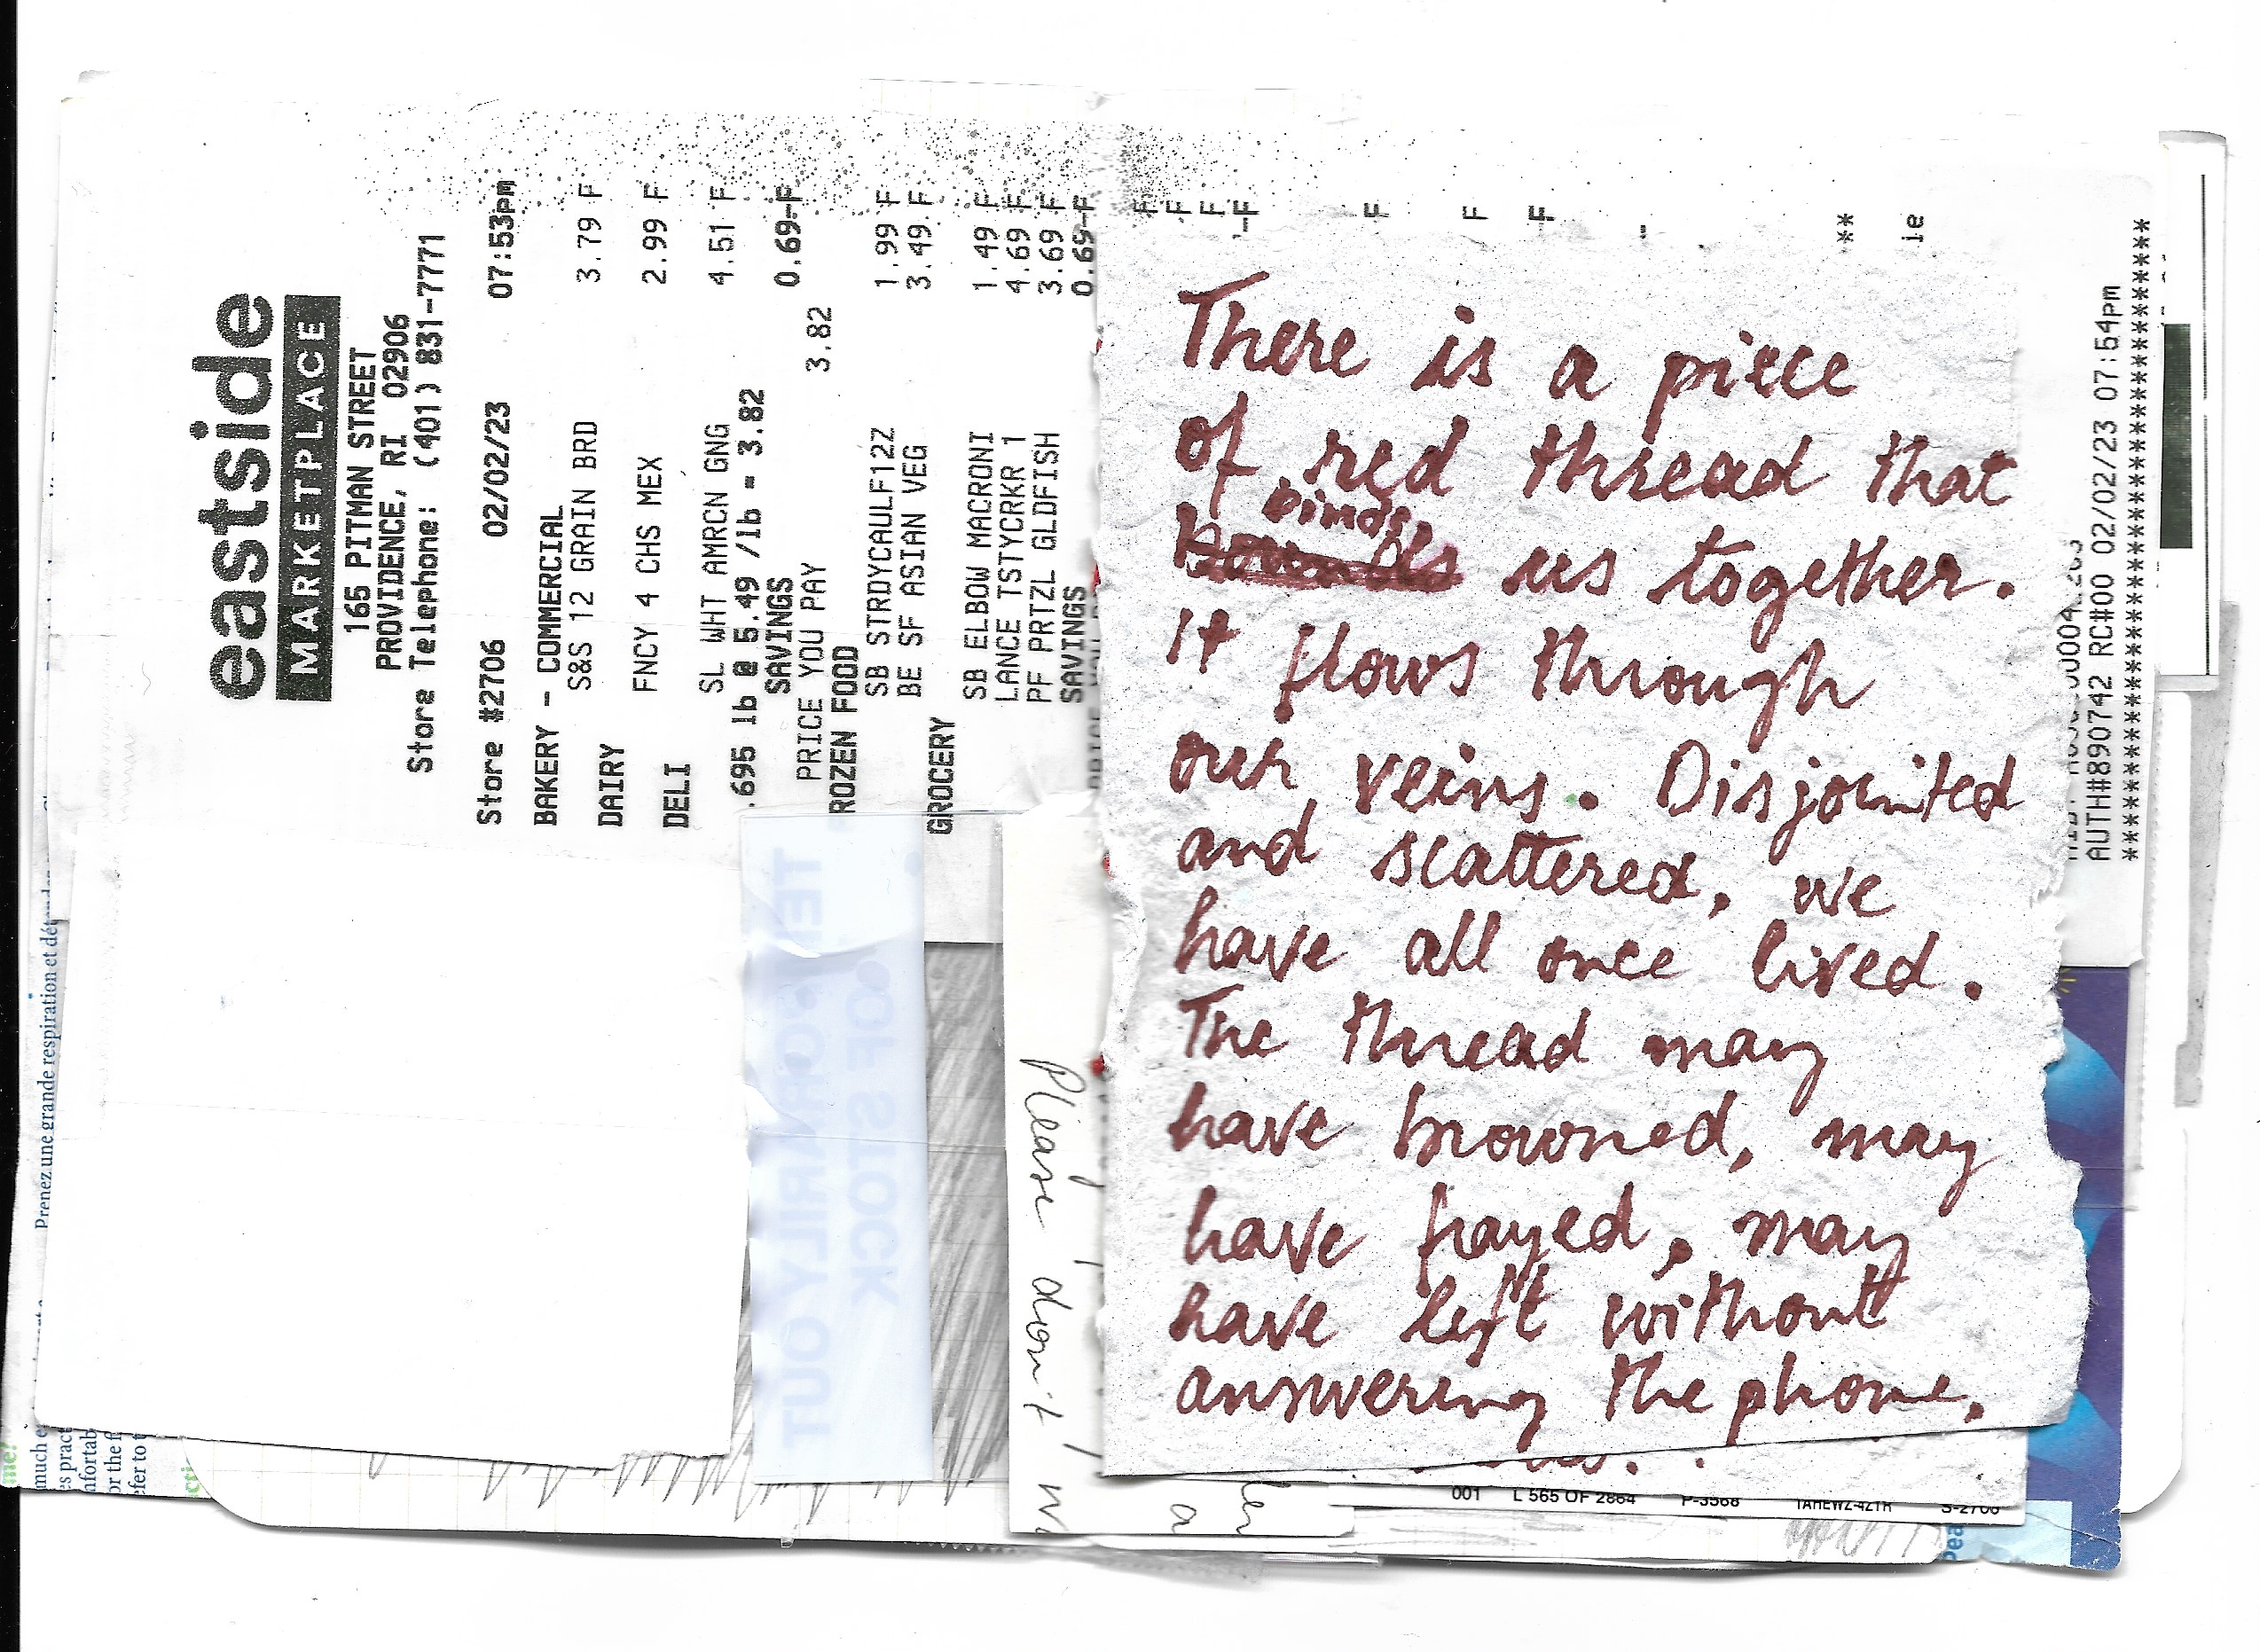 eastside
MARKETPLACE
165 PITMAN STREET
PROVIDENCE, RI 02906
Store Telephone: (401) 831-7771
Store #2706 02/02/23 07:53pm
BAKERY - COMMERCIAL
S&S 12 GRAIN BRD 3.79 F
DAIRY
FNCY 4 CHS MEX 2.99 F
DELI
SL WHT AMRCN GNG 4.51 F
.695 lb @ 5.49 /lb = 3.82
SAVINGS 0.69-F
PRICE YOU PAY 3.82
ROZEN FOOD
SB STRDYCAULF12Z 1.99 F
BE SF ASIAN VEG 3.49 F
GROCERY
SB ELBOW MACRONI 1.49 F
LANCE TSTYCRKR 1 4.69 F
PF PRTZL GLDFISH 3.69 F
SAVINGS 0.69-F
F
F
F
-F
F
F
F
-
**
ie
AUTH#890742 RC#00 02/02/23 07:54pm
Prenez une grande respiration et
TEMPORARILY OUT
OF STOCK
Please don't
a
There is a piece
of red thread that
binds
bounds us together.
It flows through
our veins. Disjointed
and scattered, we
have all once lived.
The thread may
have browned, may
have frayed, may
have left without
answering the phone.
001 L 565 OF 2864 P-3568 S-2706